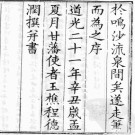 於鳴沙流泉間矣遂走筆
而為之序
道光二十一年辛丑歲孟
夏月甘藩使者玉樵程德
潤撰并書